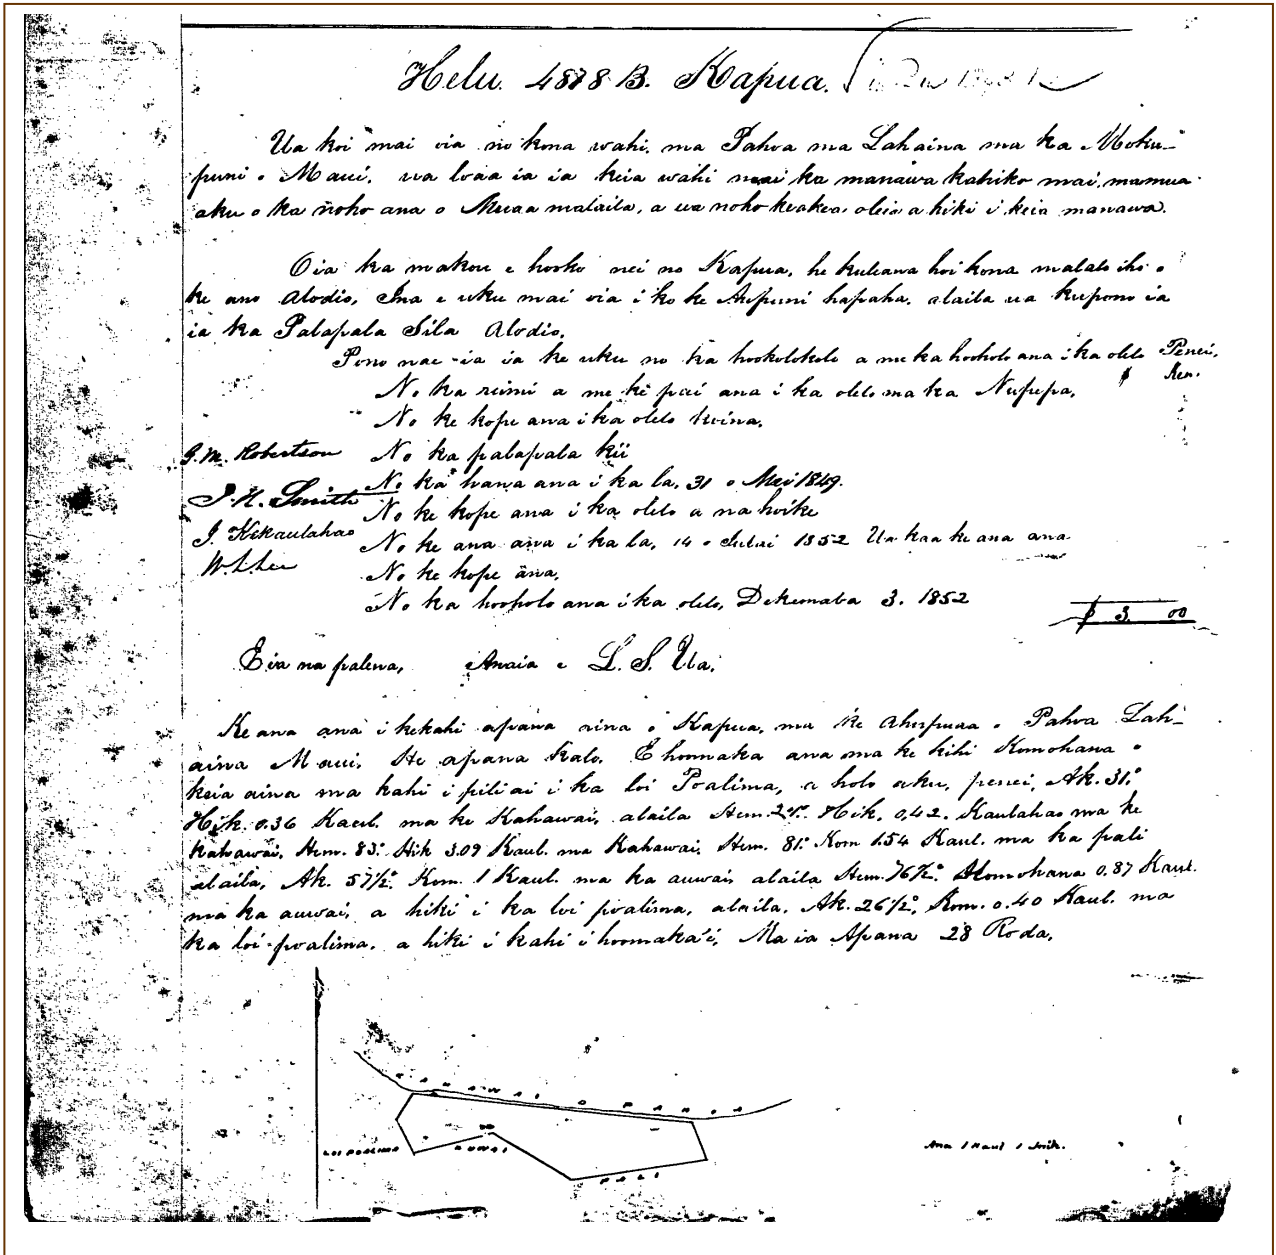 Helu. 4878 B. Kapua.
Ua koi mai oia no kona wahi, ma Pahoa ma Lahaina ma ka Moku-
puni o Maui. ua loaa ia ia keia wahi mai ka manawa kahiko mai, mamua
aku o ka noho ana o malaila, a ua noho keakea ole ia a hiki i keia manawa.
Oia ka makou e hooko nei no Kapua, he kuleana hoi kona malalo iho o
ke ano Alodio, Ina e uku mai oia i ko ke Aupuni hapaha, alaila ua kupono ia
ia ka Palapala Sila Alodio.
Pono nae ia ia ke uku no ka hookolokolo a me ka hooholo ana i ka olelo Penei,
No ka rumi a me ke pai ana i ka olelo ma ka Nupepa, $ Ken.
No ke kope ana i ka olelo koina.
J. M. Robertson No ka palapala kii
No ka hana ana i ka la, 31 o Mei 1849.
J. H. Smith No ke kope ana i ka olelo a na hoike
J. Kekaulahao No ke ana ana i ka la, 14 o Iulai 1852 Ua kaa ke ana ana
W. L. Lee No ke kope ana,
No ka hooholo ana i ka olelo, Dekemaba 3. 1852 $ 3. 00
Eia na palena, Anaia e L. S. Ua.
Ke ana ana i kekahi apana aina o Kapua, ma ke Ahupuaa o Pahoa Lah-
aina Maui. He apana Kalo. E hoomaka ana ma ke kihi Komohana o
keia aina ma kahi i pili ai i ka loi Poalima, a holo aku, penei, Ak. 31°
Hik. 0.36 Kaul. ma ke Kahawai, alaila Hem. Hik. 0,42. Kaulahao ma ke
kahawai, Hem. 83° Hik 3.09 Kaul. ma Kahawai, Hem. 81° Kom 1.54 Kaul. ma ka pali
alaila, Ak. 57½° Kom. 1 Kaul. ma ka auwai, alaila Hem. 76½° Komohana 0.87 Kaul.
ma ka auwai, a hiki i ka loi poalima, alaila, Ak. 26½° Kom. 0.40 Kaul. ma
ka loi poalima, a hiki i kahi i hoomaka'i, Ma ia Apana 28 Roda.
KAHAWAI O PAHOA
LOI POALIMA AUWAI
PALI
Ana 1 Kaul 1 Inih.